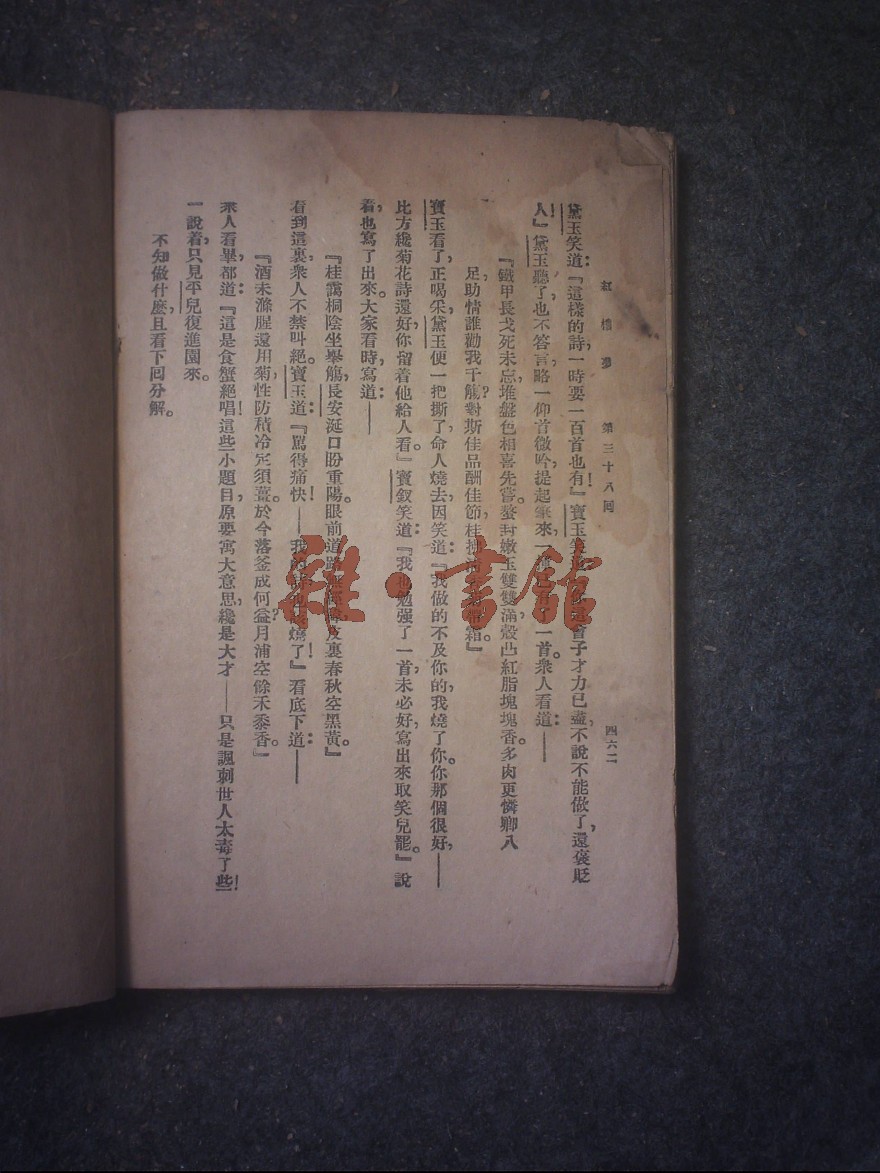 紅樓夢 第三十八回 四六二
黛玉笑道：『這樣的詩一時要一百首也有！』寶玉笑會子才力已盡，不說不能做了，還褒貶
人！』黛玉聽了，也不答言，略一仰首微吟，提起筆來，一有了一首。衆人看道：——
『鐵甲長戈死未忘，堆盤色相喜先嘗。螯封嫩玉雙雙滿，殼凸紅脂塊塊香。多肉更憐卿八
足，助情誰勸我千觴？對斯佳品酬佳節，桂霜。』
寶玉看了，正喝采，黛玉便一把撕了，命人燒去，因笑道：『我做的不及你的，我燒了你。你那個很好，——
比方纔菊花詩還好，你留着他給人看。』寶釵笑道：『我也勉强了一首，未必好，寫出來取笑兒罷。』說
着，也寫了出來。大家看時，寫道：——
『桂靄桐陰坐舉觴，長安涎口盼重陽。眼前道路皮裏春秋空黑黃。』
看到這裏，衆人不禁叫絕。寶玉道：『罵得痛快！——我的燒了！』看底下道：——
『酒未滌腥還用菊，性防積冷定須薑。於今落釜成何益？月浦空餘禾黍香。』
衆人看畢，都道：『這是食蟹絕唱！這些小題目，原要寓大意思，纔是大才——只是諷刺世人太毒了些！
一說着，只見平兒復進園來。
不知做什麽，且看下囘分解。
雜·書館